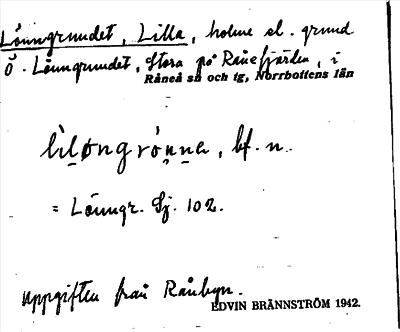 Lönngrundet, Lilla, holme el. grund
Ö. Lönngrundet, Stora på Rånefjärden, i
Råneå sn och tg, Norrbottens län
bf. n.
= Lönngr. Gj. 102.
Uppgiften från Rånbyn.
EDVIN BRÄNNSTRÖM 1942.